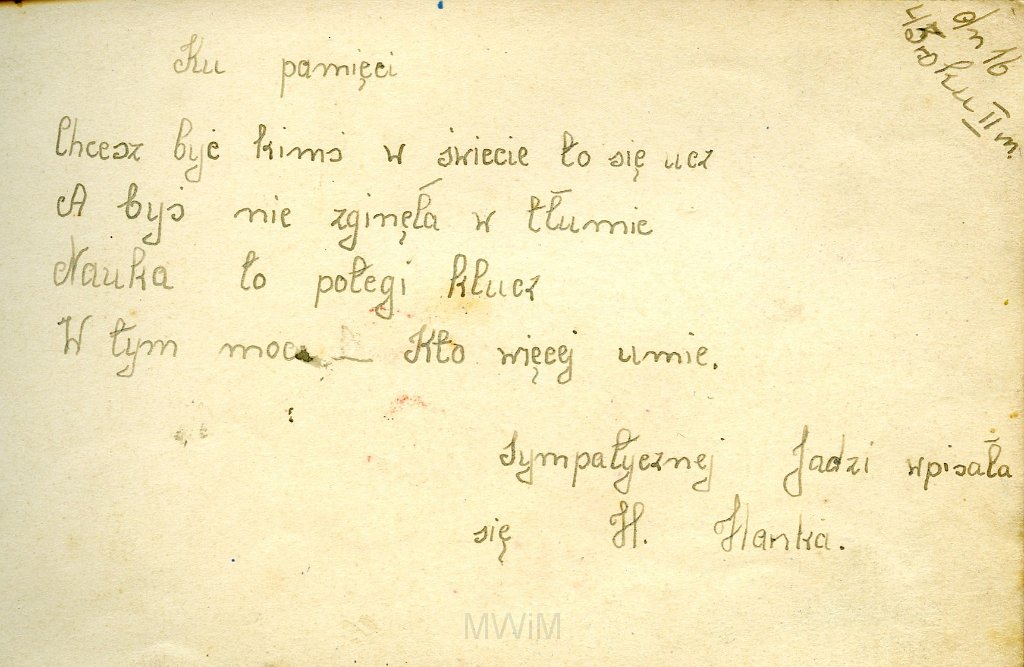 Ku pamięci
dn 16
II m.
45 roku
Chcesz być kimś w świecie to się ucz
A byś nie zginęła w tłumie
Nauka to potegi klucz
W tym moc — Kto więcej umie.
Sympatycznej Jadzi wpisała
się H. Hanka.
MWiM